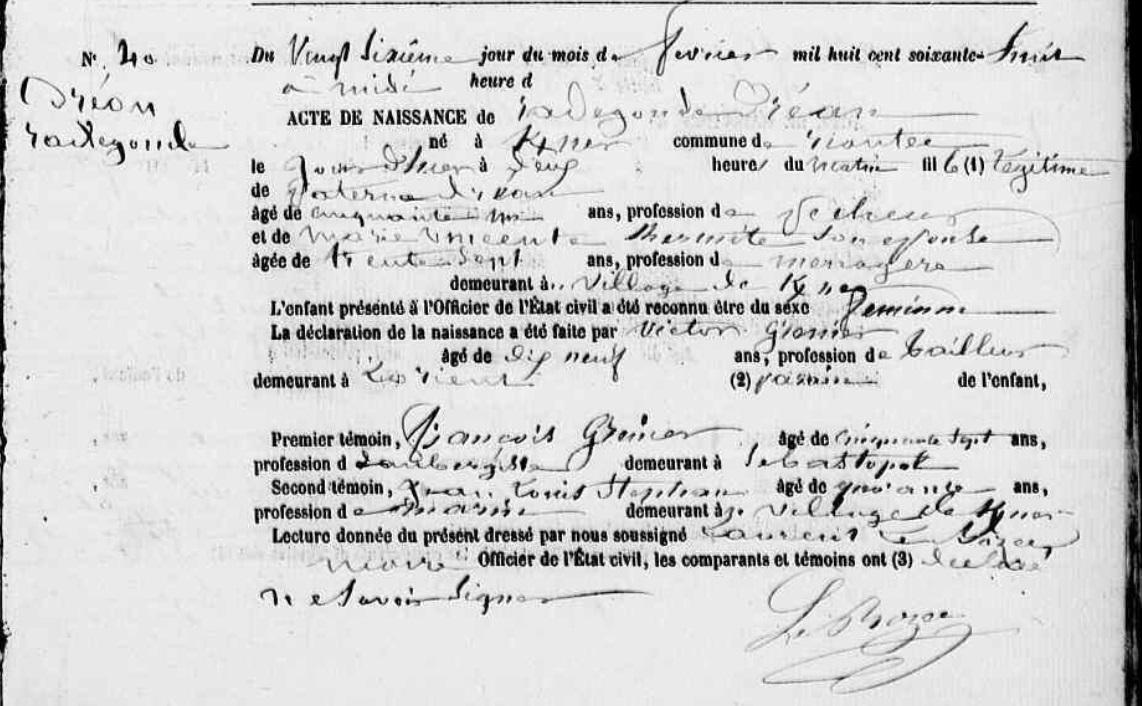 N° 20 Du Vingt Sixième jour du mois de fevrier mil huit cent soixante-huit
Dréan à midi heure d
radegonde ACTE DE NAISSANCE de radegonde Dréan
né à commune de
le jour d'hier à deux heures du matin fille (1) légitime
de paterne Dréan
âgé de cinquante ans, profession de
et de marie vincente thermite son épouse
âgée de trente sept ans, profession de menagere
demeurant à village de
L'enfant présenté à l'Officier de l'État civil a été reconnu être du sexe feminin
La déclaration de la naissance a été faite par victor Grenier
âgé de dix neuf ans, profession de tailleur
demeurant à (2) de l'enfant,
Premier témoin, François Grenier âgé de cinquante sept ans,
profession d'aubergiste demeurant à Sebastopol
Second témoin, jean Louis Stephan âgé de ans,
profession de marin demeurant à village de
Lecture donnée du présent dressé par nous soussigné Laurent
maire Officier de l'État civil, les comparants et témoins ont (3) declaré
ne savoir signer